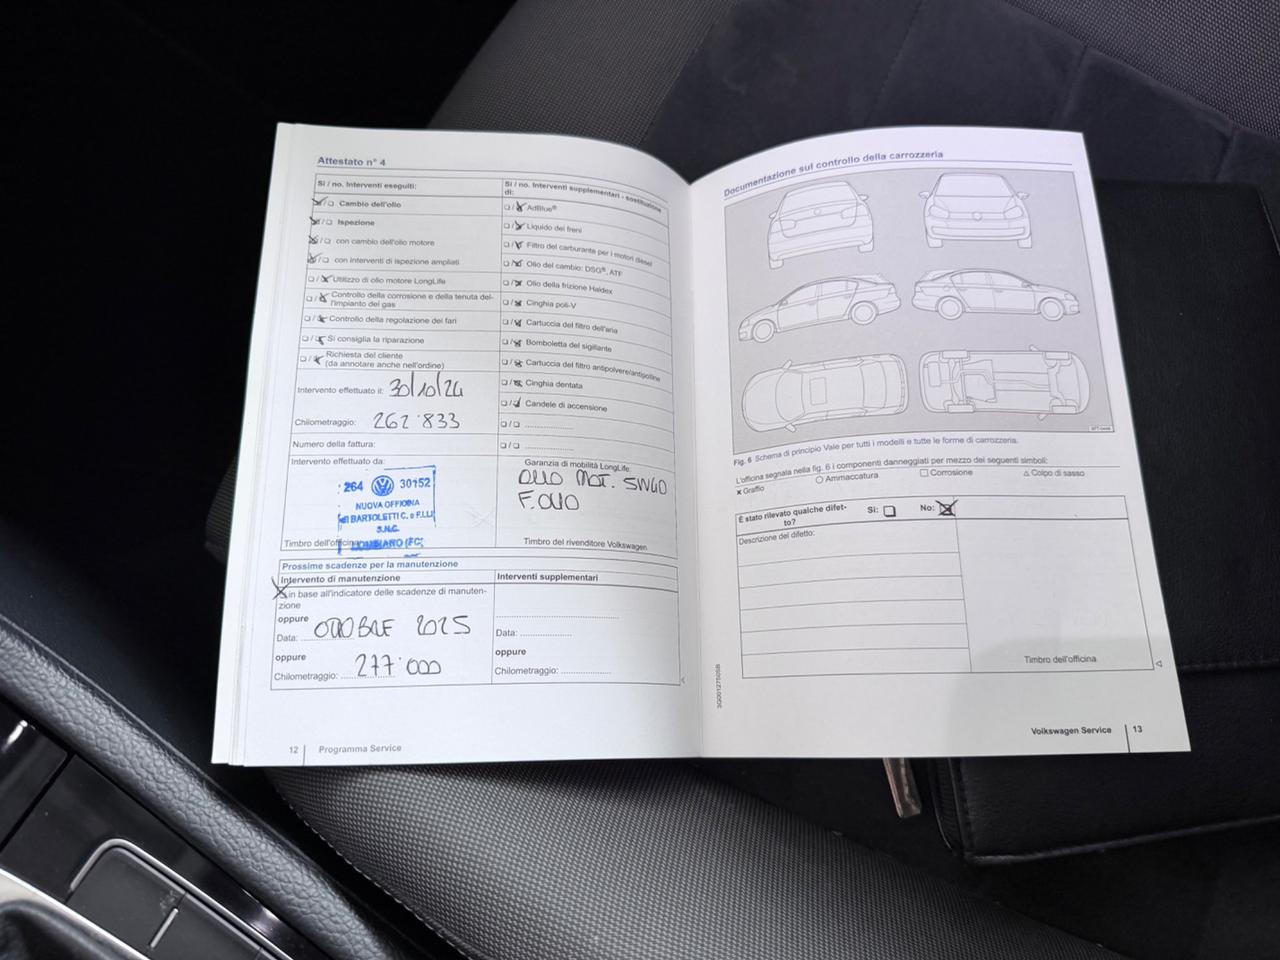 Attestato n° 4
Si / no. Interventi eseguiti:
Cambio dell'olio
Ispezione
con cambio dell'olio motore
con interventi di ispezione ampliati
Utilizzo di olio motore LongLife
Controllo della corrosione e della tenuta del-
l'impianto del gas
Controllo della regolazione dei fari
Si consiglia la riparazione
Richiesta del cliente
(da annotare anche nell'ordine)
Intervento effettuato il: 30/10/24
Chilometraggio: 262'833
Numero della fattura:
Intervento effettuato da:
264 30152
NUOVA OFFICINA
BARTOLETTI C. e F.LLI
S.N.C.
Timbro dell'officina
Si / no. Interventi supplementari - sostituzione
di:
AdBlue®
Liquido dei freni
Filtro del carburante per i motori diesel
Olio del cambio: DSG®, ATF
Olio della frizione Haldex
Cinghia poli-V
Cartuccia del filtro dell'aria
Bomboletta del sigillante
Cartuccia del filtro antipolvere/antipolline
Cinghia dentata
Candele di accensione
Garanzia di mobilità LongLife:
OLIO MOT. 5W40
F.OLIO
Timbro del rivenditore Volkswagen
Prossime scadenze per la manutenzione
Intervento di manutenzione
in base all'indicatore delle scadenze di manuten-
zione
oppure
Data: OTTOBRE 2025
oppure
Chilometraggio: 277'000
Interventi supplementari
Data:
oppure
Chilometraggio:
12 Programma Service
Documentazione sul controllo della carrozzeria
Fig. 6 Schema di principio Vale per tutti i modelli e tutte le forme di carrozzeria.
L'officina segnala nella fig. 6 i componenti danneggiati per mezzo dei seguenti simboli:
x Graffio ○ Ammaccatura □ Corrosione △ Colpo di sasso
È stato rilevato qualche difet-
to? Si: No:
Descrizione del difetto:
Timbro dell'officina
3G0012750SB
Volkswagen Service 13